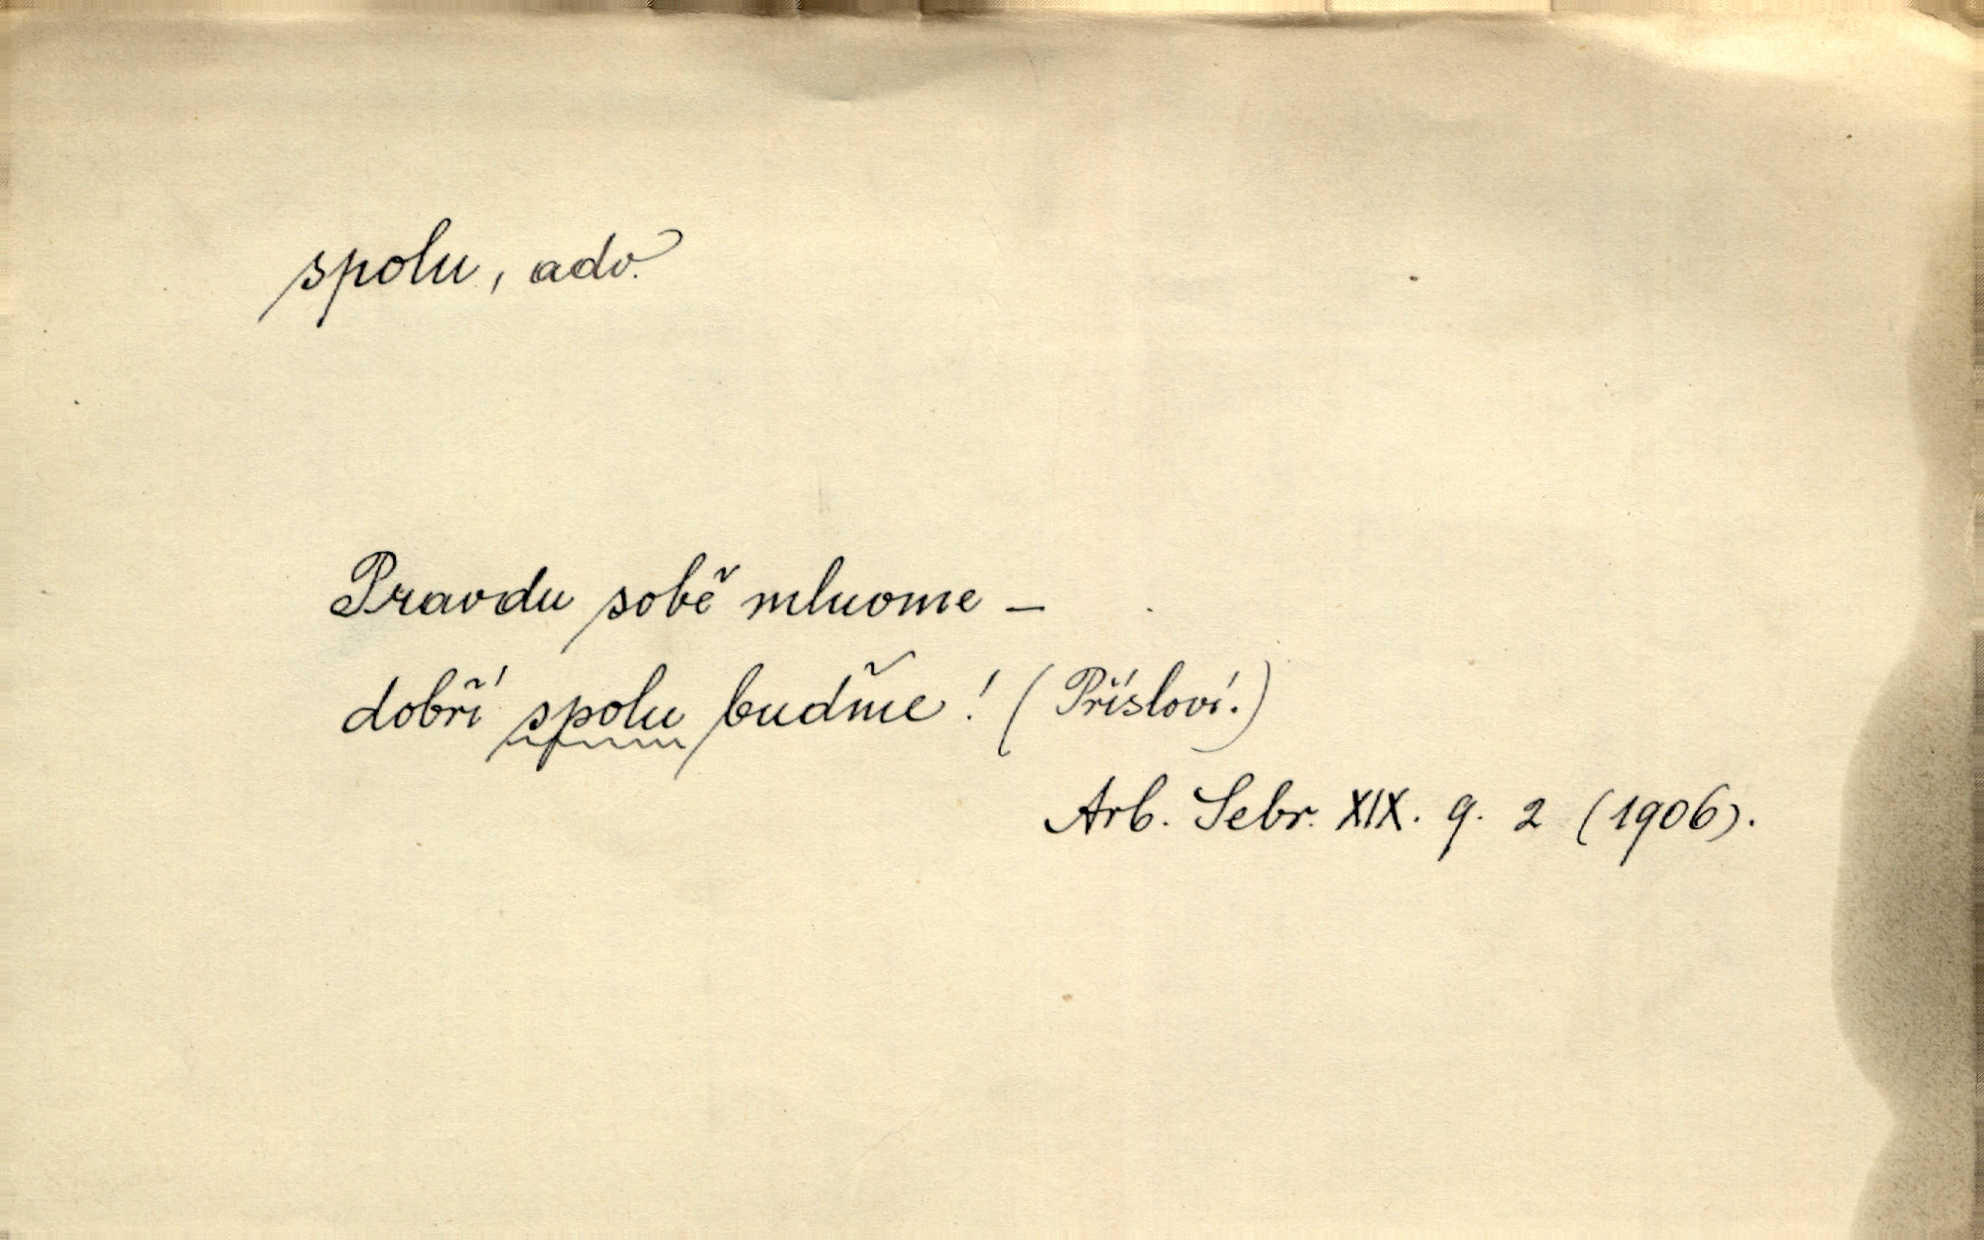 spolu, adv.
Pravdu sobě mluvme –
dobří spolu buďme! (Přísloví.)
Arb. Sebr. XIX. 9. 2 (1906).